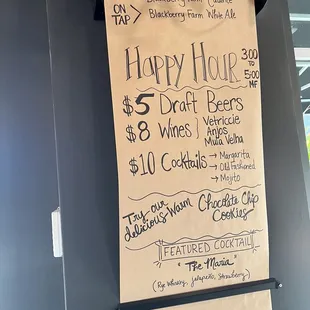 ON TAP >
Blackberry Farm
Blackberry Farm White Ale
Happy Hour
3:00 TO 5:00 MF
$5 Draft Beers
$8 Wines } Vetriccie
Anjos
Muia Velha
$10 Cocktails → Margarita
→ Old Fashioned
→ Mojito
Try our delicious warm Chocolate Chip Cookies
FEATURED COCKTAIL
"The Maria"
(Rye Whiskey, jalapeño, strawberry)